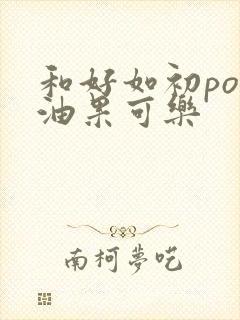 和好如初po
油果可樂
南柯夢呓